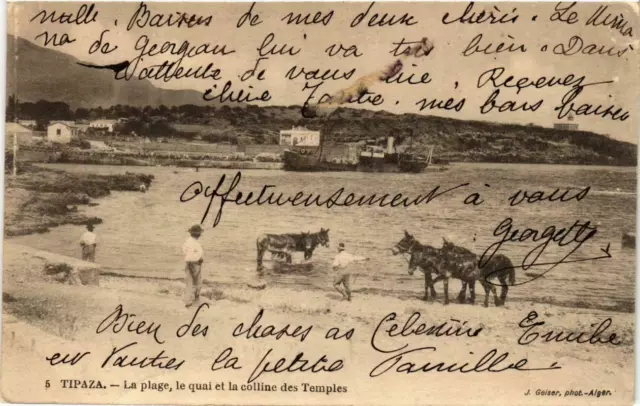 nulle. Baisers de mes deux chéris. Le Mima
na de Georgean lui va très bien. Dans
l'attente de vous lire, Recevez
chère Toute mes bars baisers
affectueusement à vous
Georgette
Bien des choses a Celestine Emibe
et vautres la petite Famille
5 TIPAZA. — La plage, le quai et la colline des Temples
J. Geiser, phot.-Alger.